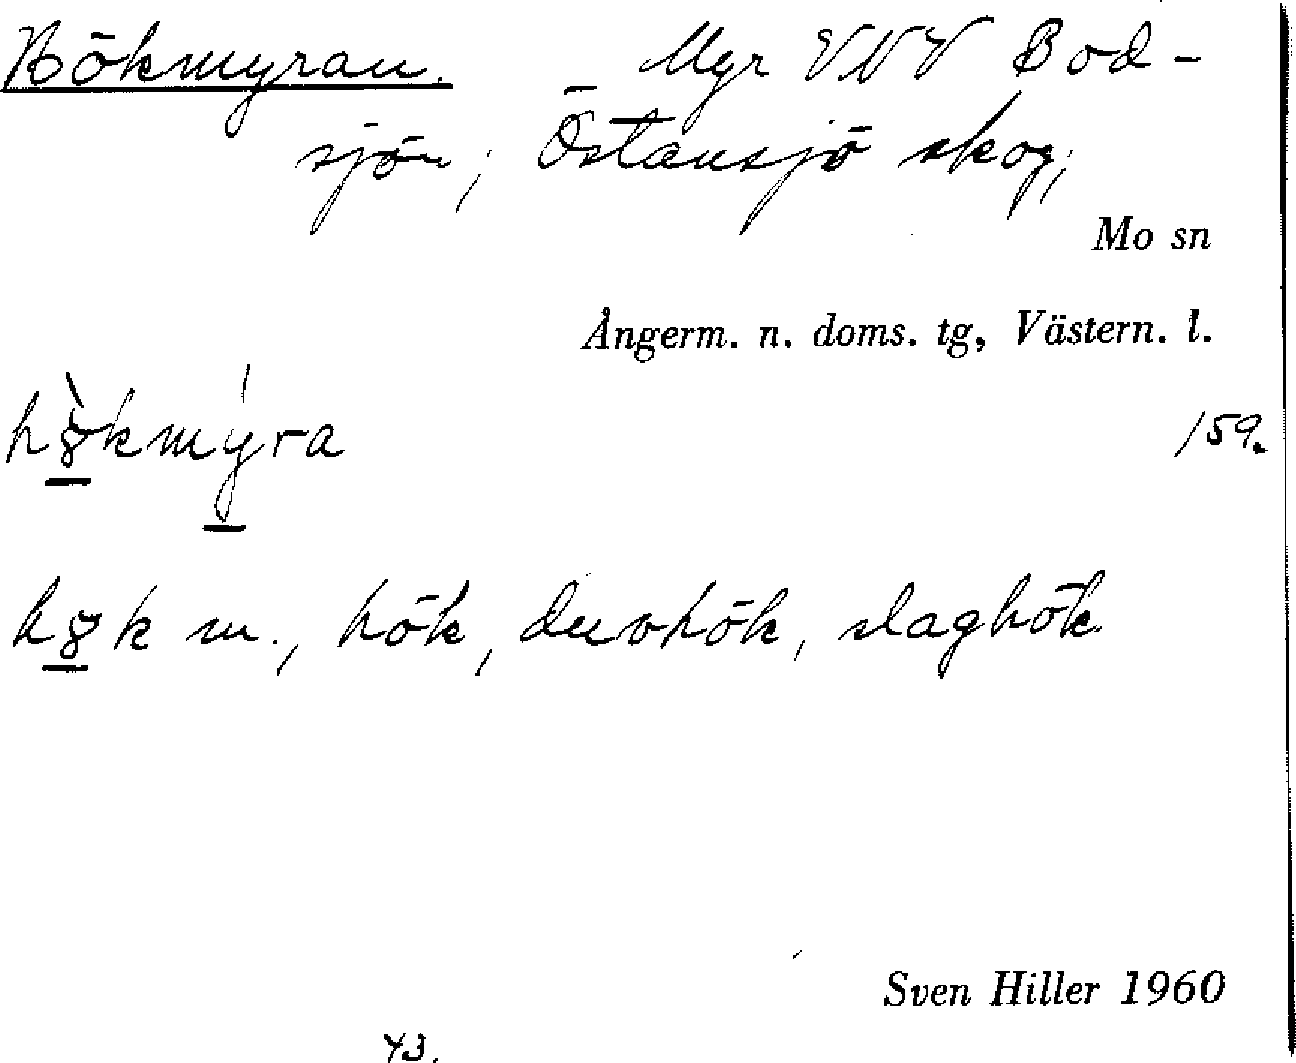 Hökmyran. Myr VNV Bod-
sjön; Östansjö skog;
Mo sn
Ångerm. n. doms. tg, Västern. l.
hȣ̀kmýra /59.
hȣk m., hök, duvhök, slaghök
Sven Hiller 1960
43.